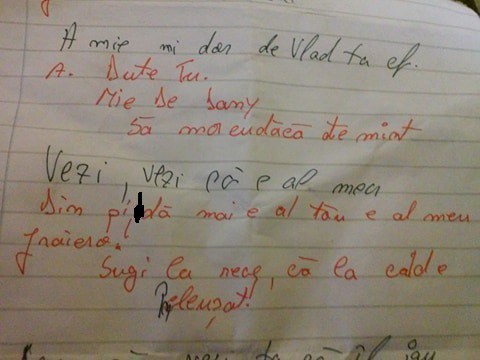 A mie mi dor de Vlad ta ef.
A. Dute Tu.
Mie De Dany
Să mor eudăcă te mint
Vezi, vezi că e al meu
Din pi dă mai e al tău e al meu
fraiero!
Sugi la rece, că la cald e
Relenșat!